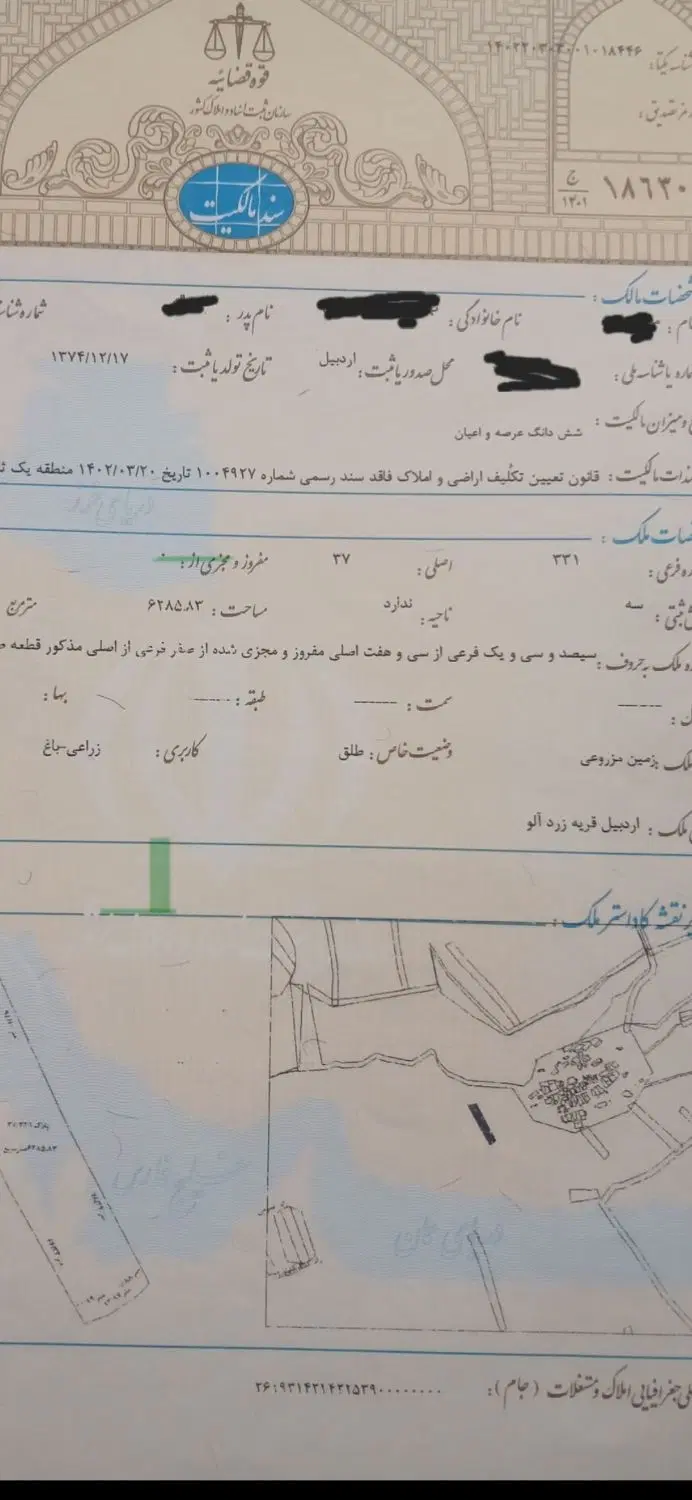 قوه قضائیه
سازمان ثبت اسناد و املاک کشور
۱۴۰۲۲۰۳۰۳۰۰۱۰۱۸۴۴۶
رمز تصدیق :
سند مالکیت
ج ۱۴۰۱
۱۸۶۳۰
مشخصات مالک :
نام : نام خانوادگی : نام پدر : شماره شناس
شماره یا شناسه ملی : محل صدور یا ثبت : اردبیل تاریخ تولد یا ثبت : ۱۳۷۴/۱۲/۱۷
و میزان مالکیت : شش دانگ عرصه و اعیان
مستندات مالکیت : قانون تعیین تکلیف اراضی و املاک فاقد سند رسمی شماره ۱۰۰۴۹۲۷ تاریخ ۱۴۰۲/۰۳/۲۰ منطقه یک ث
دریای خزر
مشخصات ملک :
ه فرعی : ۳۳۱ اصلی : ۳۷ مفروز و مجزی از : ۰
ثبتی : سه ناحیه : ندارد مساحت : ۶۲۸۵.۸۳ مترمربع
ه ملک به حروف : سیصد و سی و یک فرعی از سی و هفت اصلی مفروز و مجزی شده از صفر فرعی از اصلی مذکور قطعه
ک : ------ سمت : ------ طبقه : ------ بها :
ملک : زمین مزروعی وضعیت خاص : طلق کاربری : زراعی-باغ
ملک : اردبیل قریه زرد آلو
نقشه کاداستر ملک :
خلیج فارس
دریای عمان
جغرافیایی املاک و مستغلات (جام) : ۲۶:۹۳۱۴۲۱۴۲۱۵۳۹۰۰۰۰۰۰۰۰۰